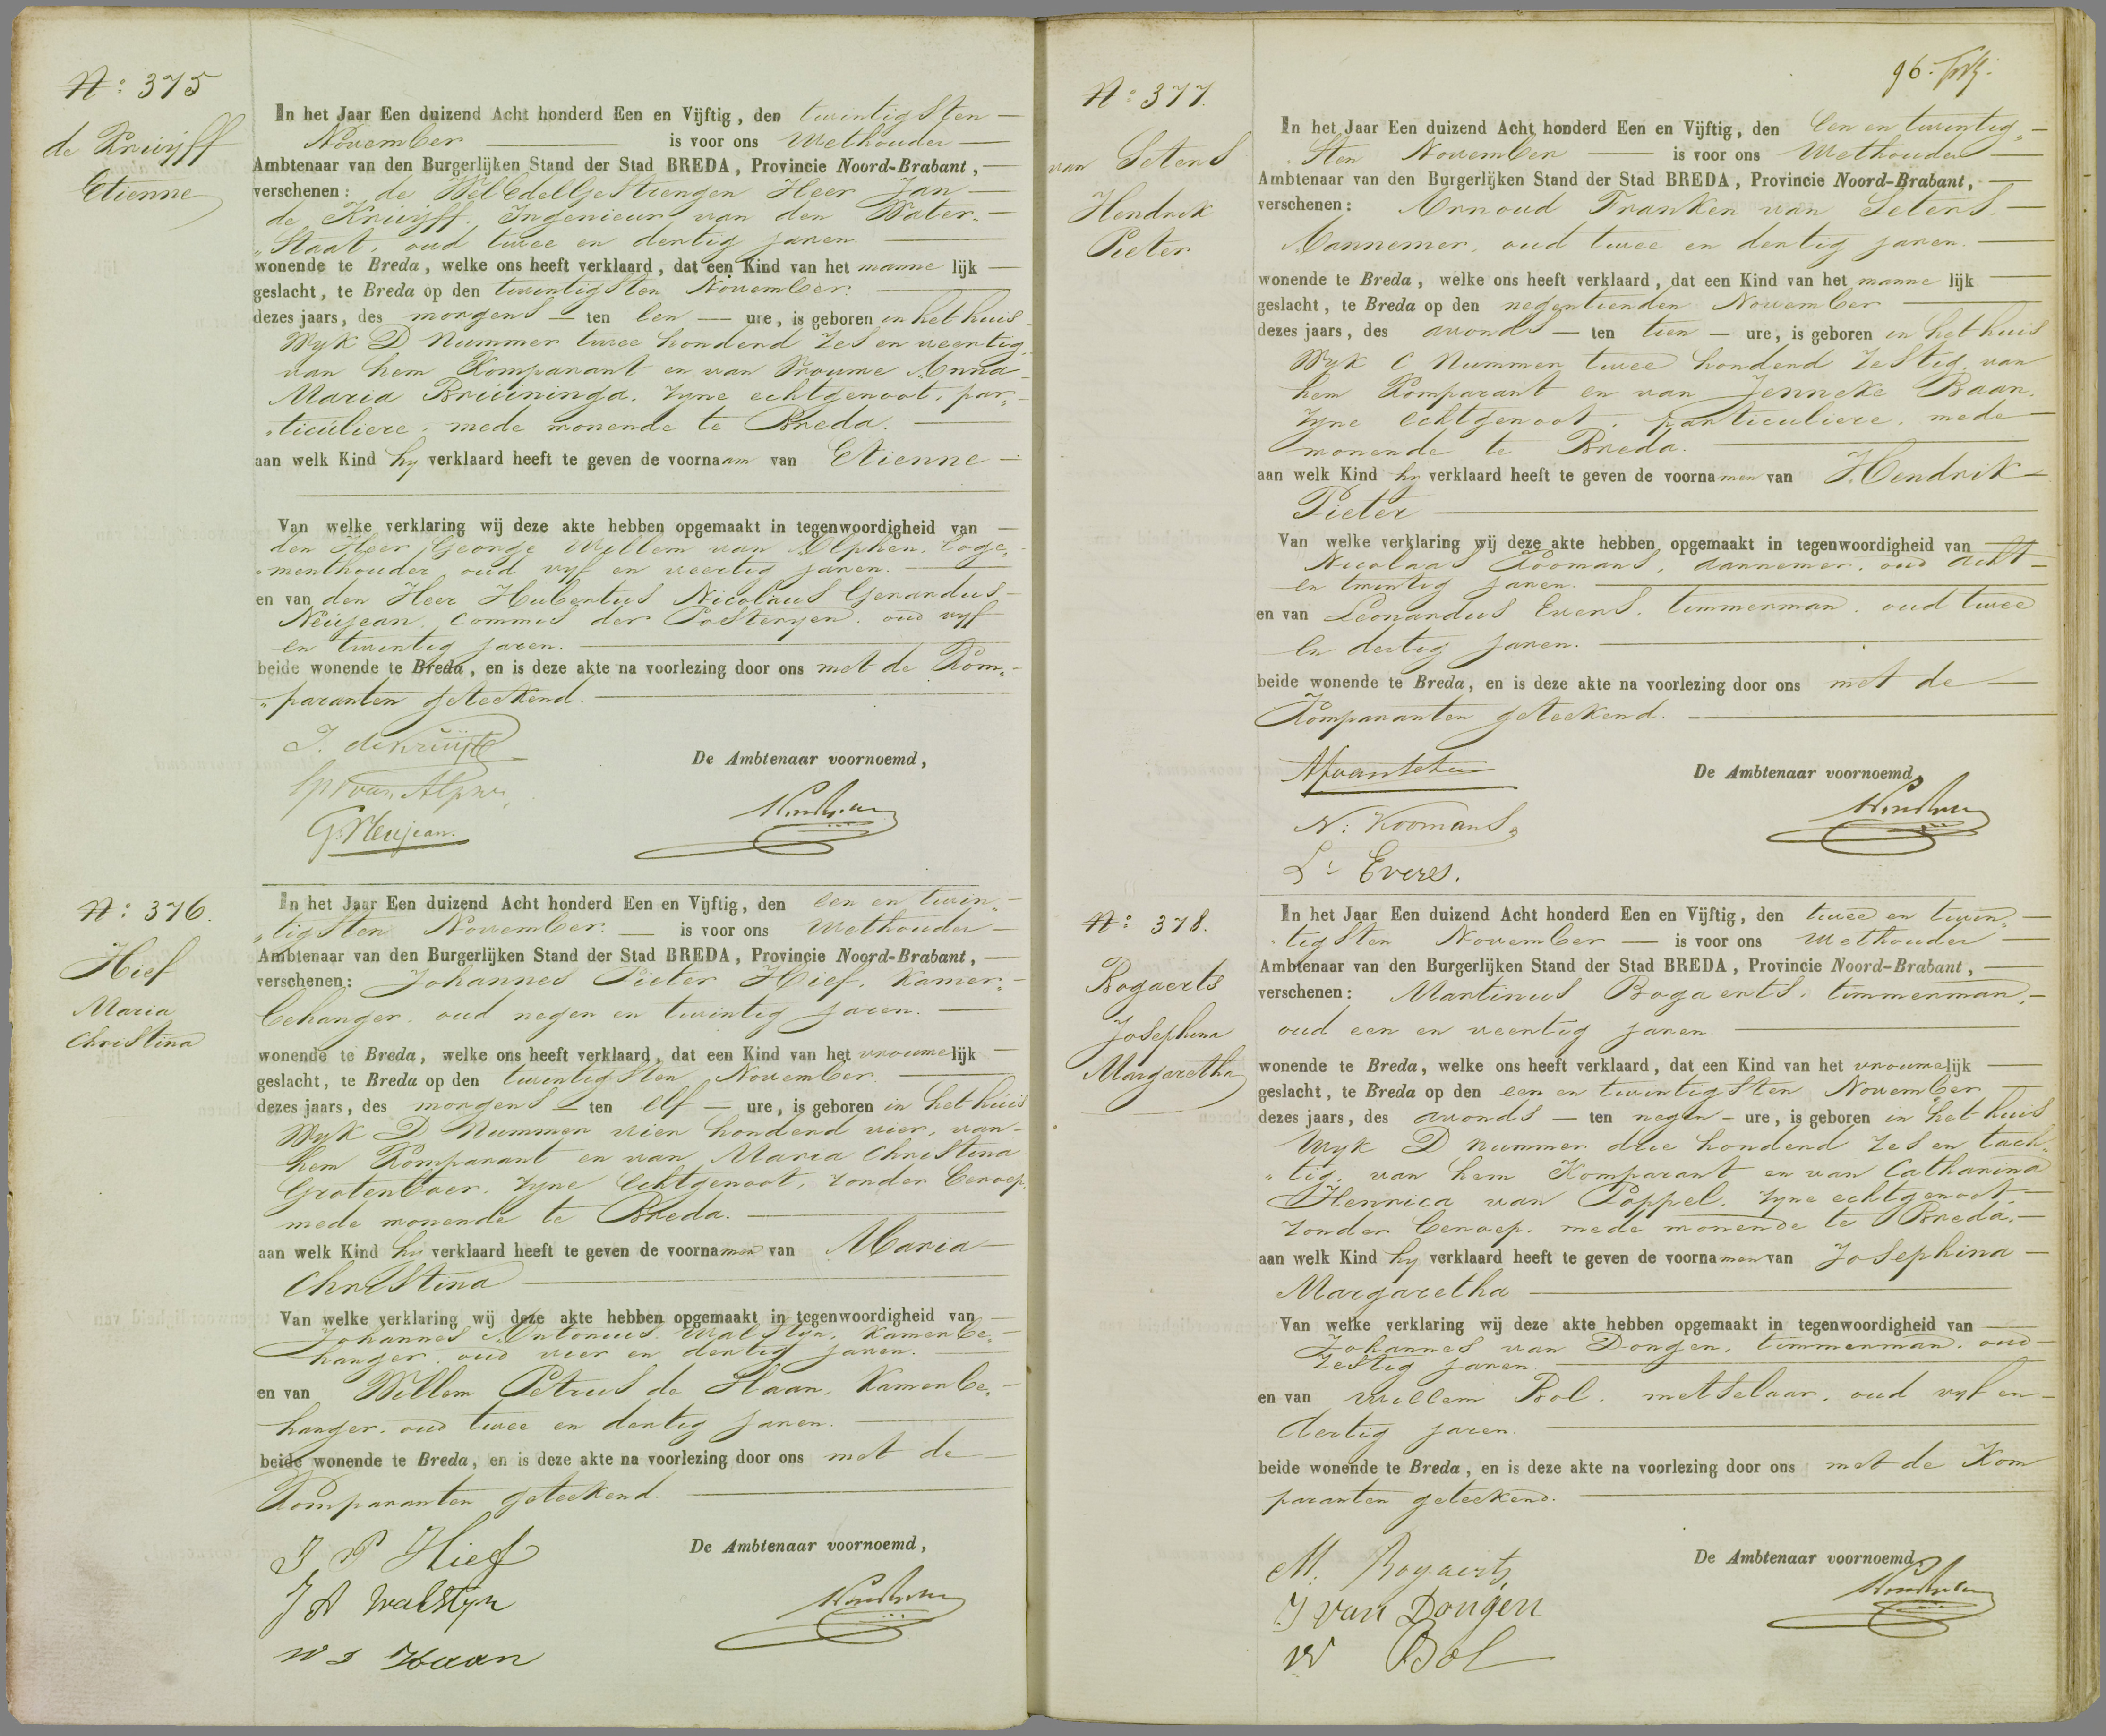 N: 375
de Kruijff
Etienne
In het Jaar Een duizend Acht honderd Een en Vijftig, den twintigsten
November is voor ons Wethouder
Ambtenaar van den Burgerlijken Stand der Stad BREDA, Provincie Noord-Brabant,
verschenen: de WelEdelGestrengen Heer Jan
de Kruijff, Ingenieur van den Water-
„Staat, oud twee en dertig jaren.
wonende te Breda, welke ons heeft verklaard, dat een Kind van het mannelijk
geslacht, te Breda op den twintigsten November
dezes jaars, des morgens ten een ure, is geboren in het huis
Wyk D Nummer twee honderd Zes en veertig,
van hem Komparant en van Vrouwe Anna
Maria Bruininga, zyne echtgenoot, par-
„ticuliere, mede wonende te Breda.
aan welk Kind hy verklaard heeft te geven de voornaam van Etienne
Van welke verklaring wij deze akte hebben opgemaakt in tegenwoordigheid van
den Heer George Willem van Alphen, loge-
„menthouder, oud vyf en veertig jaren.
en van den Heer Hubertus Nicolaus Gerardus
Neujean, Commis der Posteryen, oud vyf
en twintig jaren.
beide wonende te Breda, en is deze akte na voorlezing door ons met de Kom-
„paranten geteekend.
J. de Kruijff
van Alphen
De Ambtenaar voornoemd,
G. Neujean.
N: 376.
Hief
Maria
Christina
In het Jaar Een duizend Acht honderd Een en Vijftig, den een en twin-
„tigsten November is voor ons Wethouder
Ambtenaar van den Burgerlijken Stand der Stad BREDA, Provincie Noord-Brabant,
verschenen: Johannes Pieter Hief, Kamer-
behanger, oud negen en twintig jaren.
wonende te Breda, welke ons heeft verklaard, dat een Kind van het vrouwelijk
geslacht, te Breda op den twintigsten November
dezes jaars, des morgens ten elf ure, is geboren in het huis
Wyk D Nummer vier honderd vier, van
hem Komparant en van Maria Christina
Grotenboer, zyne Echtgenoot, zonder beroep,
mede wonende te Breda.
aan welk Kind hy verklaard heeft te geven de voornamen van Maria
Christina
Van welke verklaring wij deze akte hebben opgemaakt in tegenwoordigheid van
Johannes Antonius Walstyn, Kamerbe-
hanger, oud vier en dertig jaren.
en van Willem Petrus de Haan, Kamerbe-
hanger, oud twee en dertig jaren.
beide wonende te Breda, en is deze akte na voorlezing door ons met de
Komparanten geteekend.
J P Hief
De Ambtenaar voornoemd,
J A Walstyn
W d Haan
96.
N: 377.
van Seters
Hendrik
Pieter
In het Jaar Een duizend Acht honderd Een en Vijftig, den een en twintig-
„sten November is voor ons Wethouder
Ambtenaar van den Burgerlijken Stand der Stad BREDA, Provincie Noord-Brabant,
verschenen: Arnoud Franken van Seters,
Aannemer, oud twee en dertig jaren.
wonende te Breda, welke ons heeft verklaard, dat een Kind van het mannelijk
geslacht, te Breda op den negentienden November
dezes jaars, des avonds ten tien ure, is geboren in het huis
Wyk C Nummer twee honderd Zestig, van
hem Komparant en van Jenneke Baan,
zyne echtgenoot, particuliere, mede
wonende te Breda.
aan welk Kind hy verklaard heeft te geven de voornamen van Hendrik
Pieter
Van welke verklaring wij deze akte hebben opgemaakt in tegenwoordigheid van
Nicolaas Koomans, aannemer, oud acht
en twintig jaren.
en van Leonardus Evers, timmerman, oud twee
en dertig jaren.
beide wonende te Breda, en is deze akte na voorlezing door ons met de
Komparanten geteekend.
AFvanSeters
De Ambtenaar voornoemd,
N: Koomans
Ls Evers.
N: 378.
Bogaerts
Josephina
Margaretha
In het Jaar Een duizend Acht honderd Een en Vijftig, den twee en twin-
„tigsten November is voor ons Wethouder
Ambtenaar van den Burgerlijken Stand der Stad BREDA, Provincie Noord-Brabant,
verschenen: Martinus Bogaerts, timmerman,
oud een en veertig jaren
wonende te Breda, welke ons heeft verklaard, dat een Kind van het vrouwelijk
geslacht, te Breda op den een en twintigsten November
dezes jaars, des avonds ten negen ure, is geboren in het huis
Wyk D nummer drie honderd zes en tach-
„tig, van hem Komparant en van Catharina
Henrica van Poppel, zyne echtgenoot,
zonder beroep, mede wonende te Breda,
aan welk Kind hy verklaard heeft te geven de voornamen van Josephina
Margaretha
Van welke verklaring wij deze akte hebben opgemaakt in tegenwoordigheid van
Johannes van Dongen, timmerman, oud
zestig jaren
en van Willem Bol, metselaar, oud vyf en
dertig jaren.
beide wonende te Breda, en is deze akte na voorlezing door ons met de Kom
paranten geteekend.
M. Bogaerts
De Ambtenaar voornoemd,
J van Dongen
W Bol